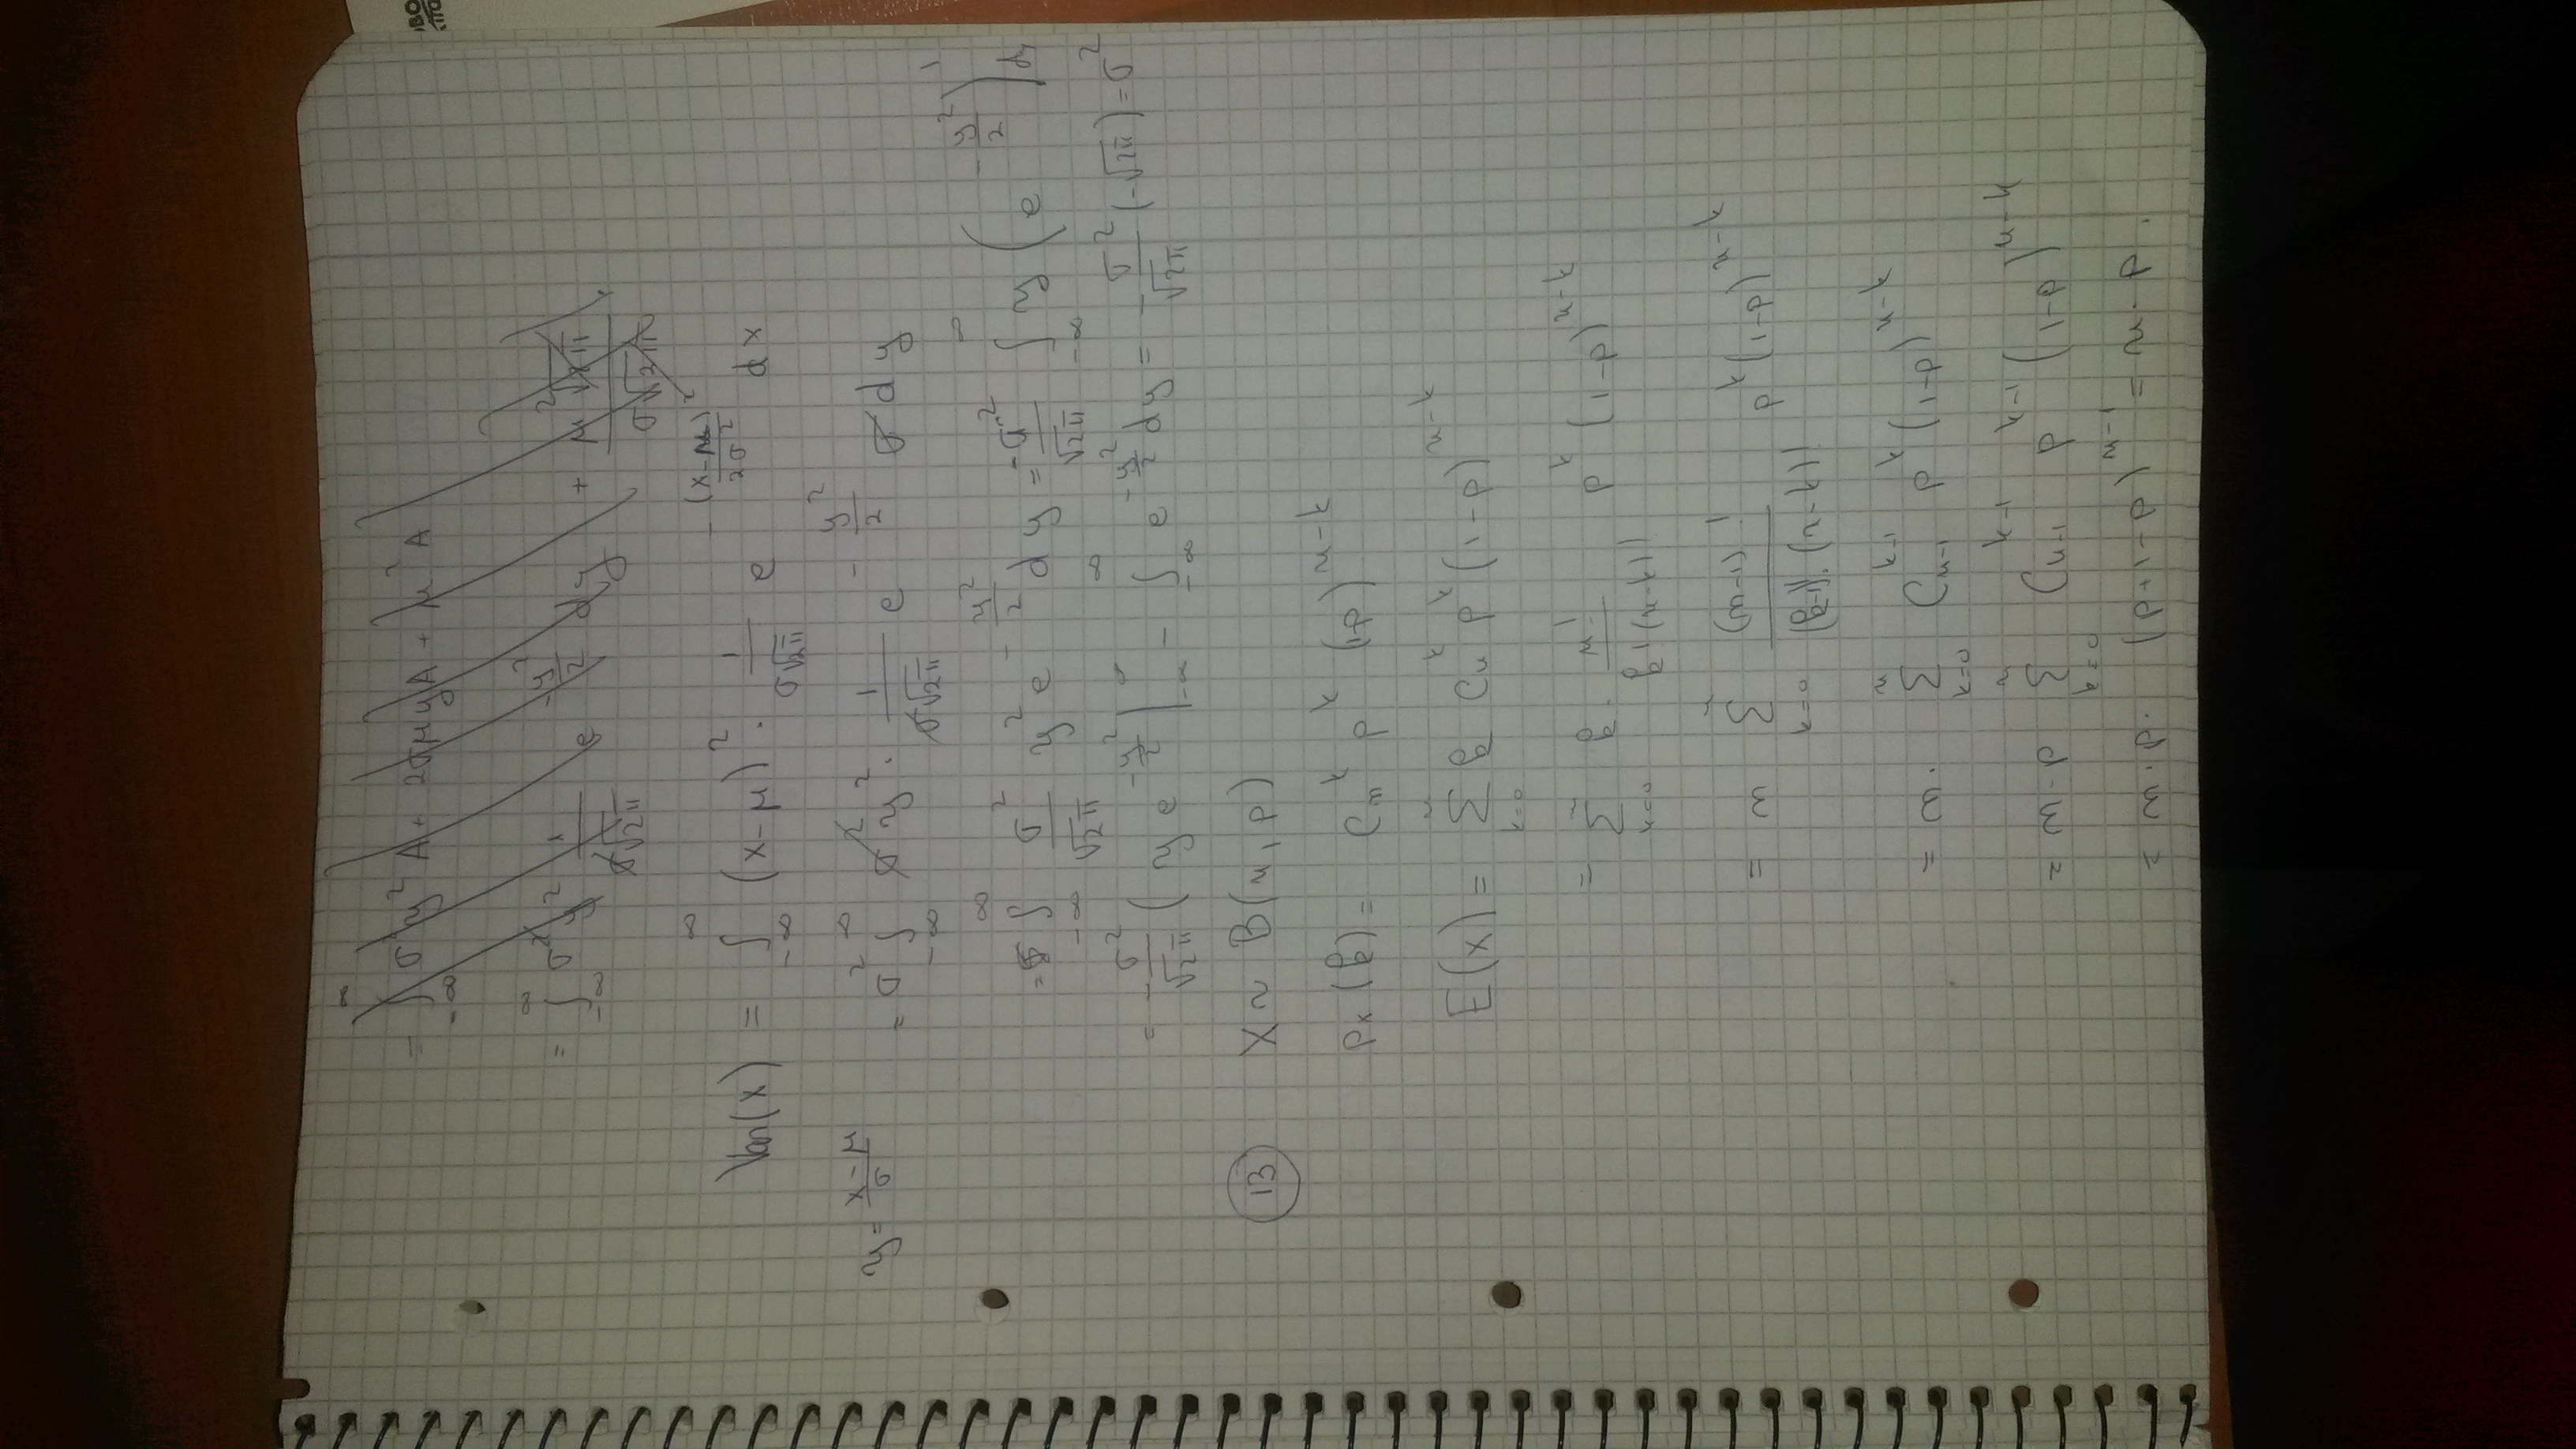 = ∫_{-∞}^{∞} σ²y²A + 2σμyA + μ²A
= ∫_{-∞}^{∞} σ²y² 1/(σ√2π) e^{-y²/2} dy + μ²√2π/(σ√2π)
Var(X) = ∫_{-∞}^{∞} (x-μ)² · 1/(σ√2π) e^{-(x-μ)²/2σ²} dx
y = (x-μ)/σ
= σ² ∫_{-∞}^{∞} σ² y² · 1/(σ√2π) e^{-y²/2} σ dy
= ∫_{-∞}^{∞} σ²/√2π y² e^{-y²/2} dy = -σ²/√2π ∫_{-∞}^{∞} y (e^{-y²/2})' dy
= -σ²/√2π ( y e^{-y²/2} |_{-∞}^{∞} - ∫_{-∞}^{∞} e^{-y²/2} dy = -σ²/√2π (-√2π) = σ²
13 X ~ B(n, p)
p_X(k) = C_n^k p^k (1-p)^{n-k}
E(X) = Σ_{k=0}^{n} k C_n^k p^k (1-p)^{n-k}
= Σ_{k=0}^{n} k · n!/(k!(n-k)!) p^k (1-p)^{n-k}
= n Σ_{k=0}^{n} (n-1)!/((k-1)!·(n-k)!) p^k (1-p)^{n-k}
= n · Σ_{k=0}^{n} C_{n-1}^{k-1} p^k (1-p)^{n-k}
= n·p Σ_{k=0}^{n} C_{n-1}^{k-1} p^{k-1} (1-p)^{n-k}
= n·p· (p+1-p)^{n-1} = n·p.